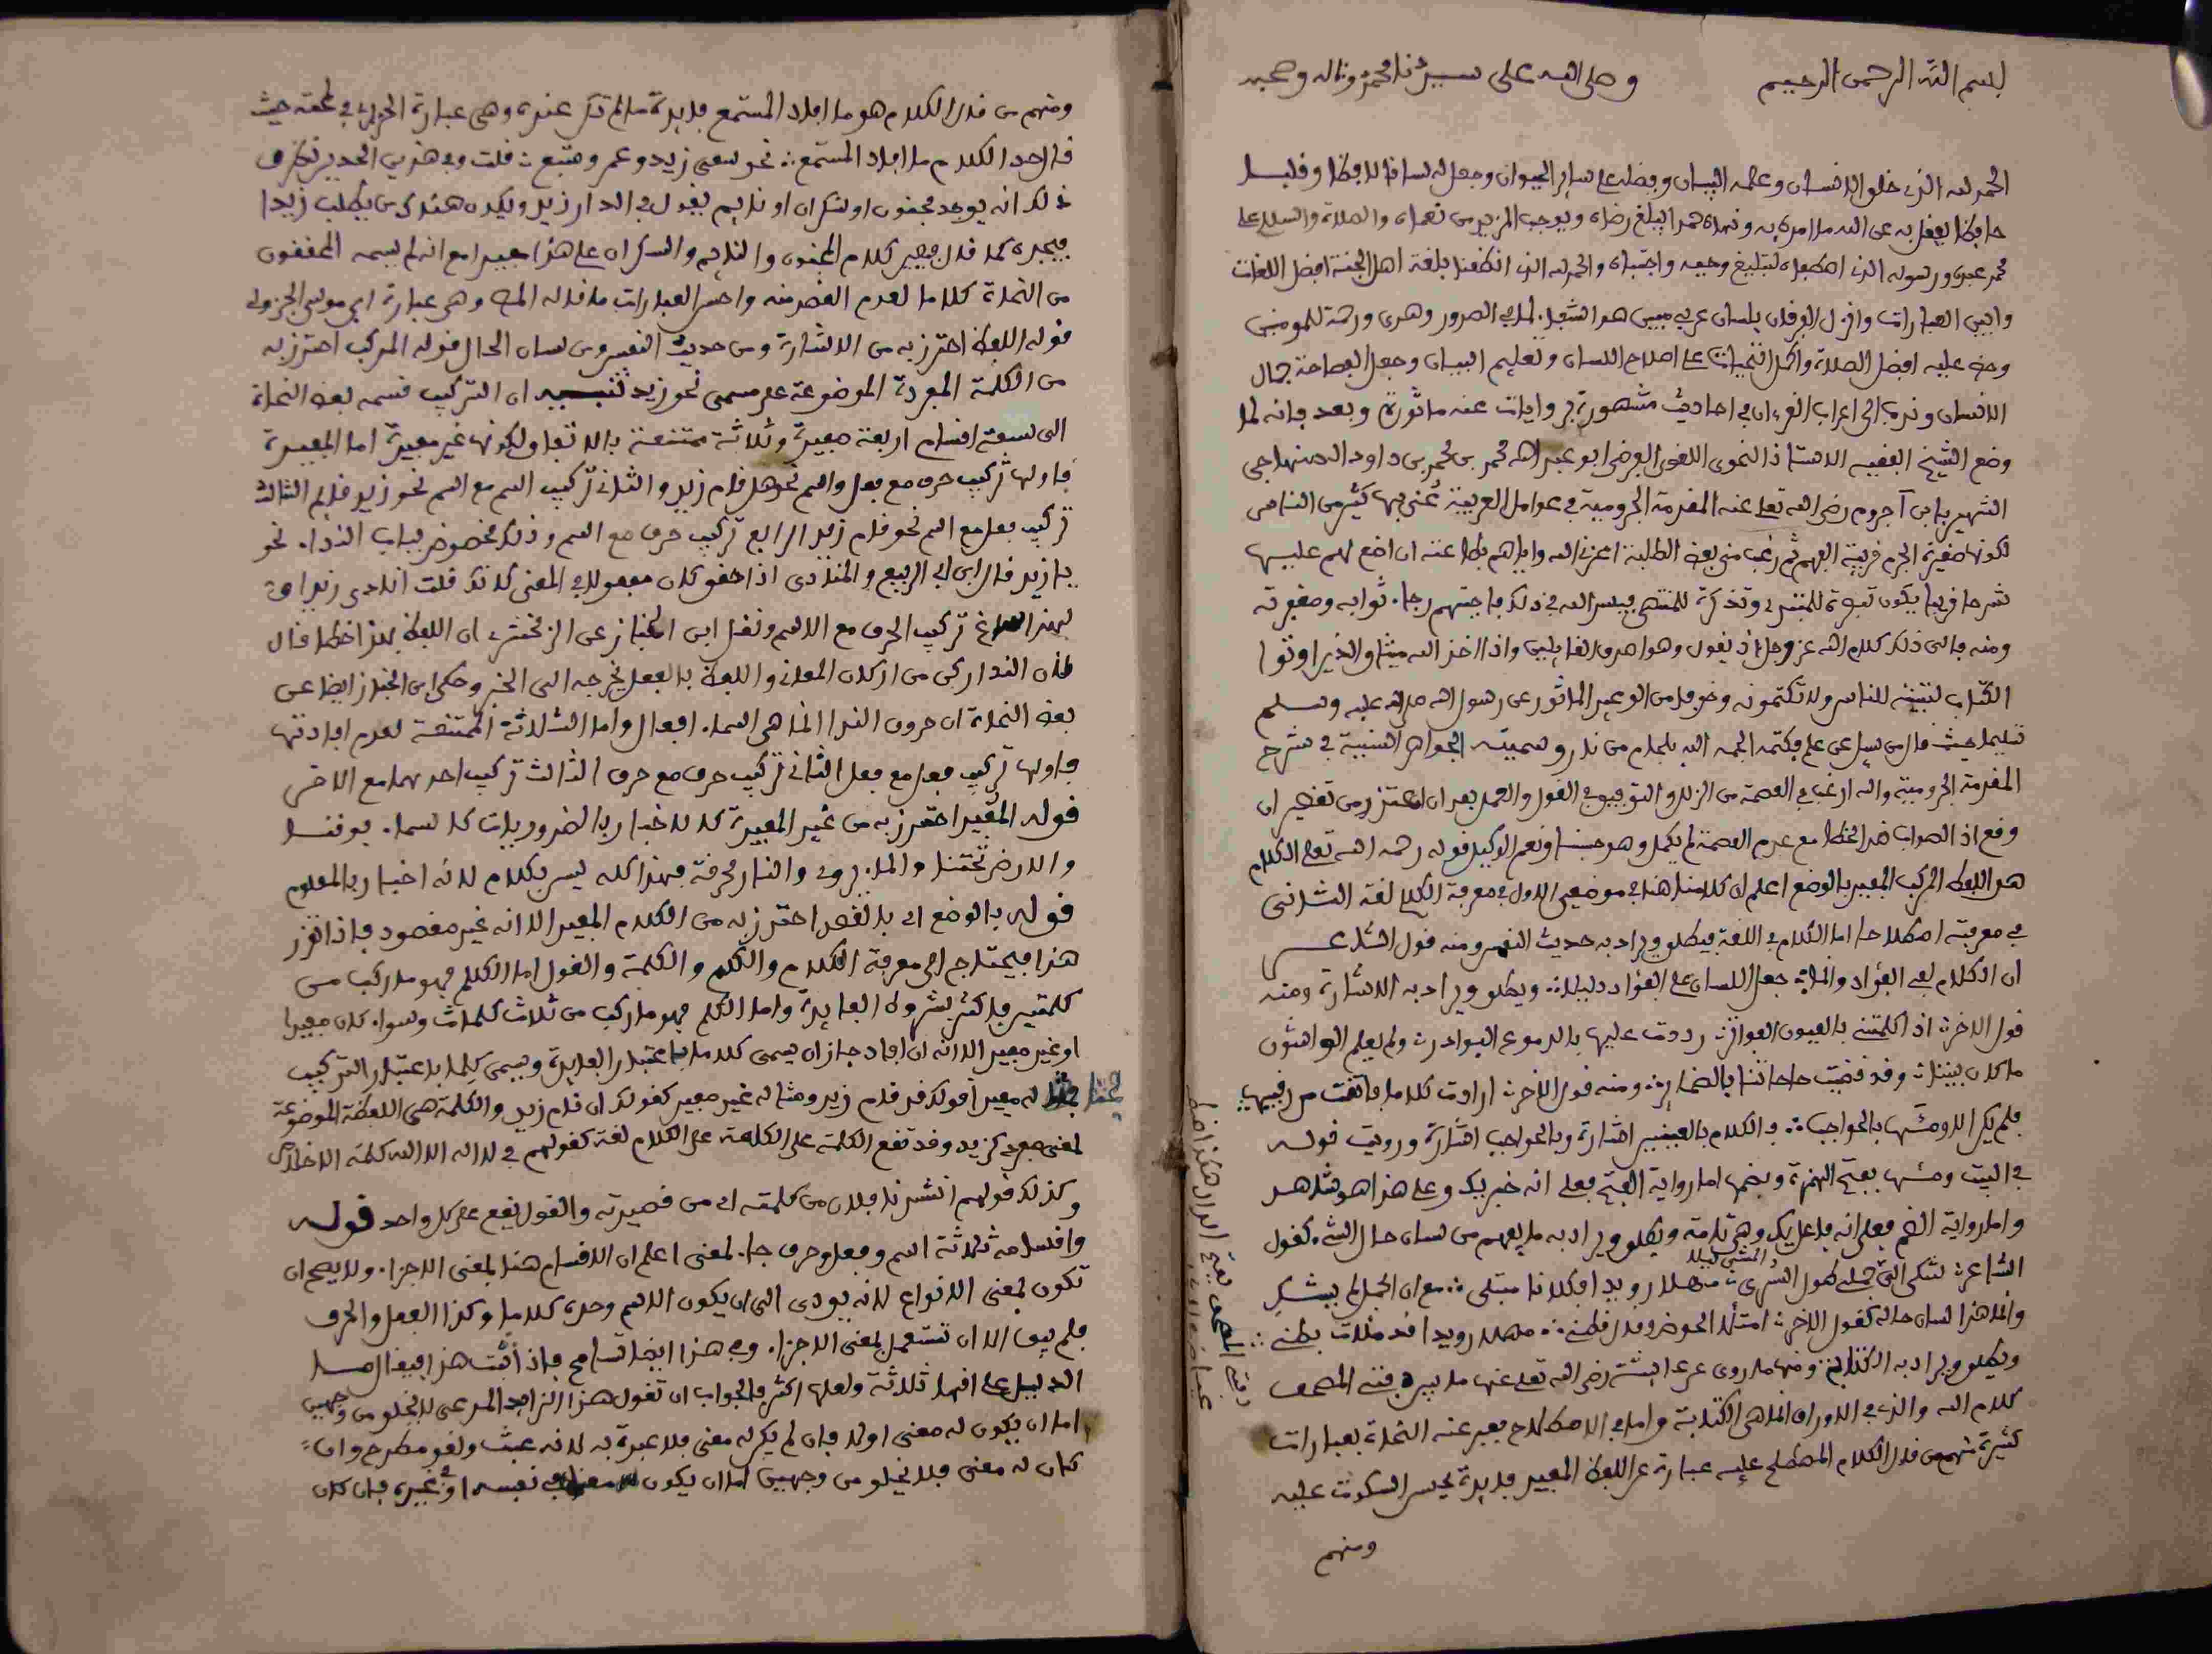 بسم الله الرحمن الرحيم وصلى الله على سيدنا محمد وءاله وصحبه
الحمد لله الذي خلق الانسان وعلمه البيان وفضله على سائر الحيوان وجعل له لسانا لافظا وقلبا
حافظا يعقل به عن الله ما امره به ونهاه حمدا يبلغ رضاه ويوجب المزيد من نعماه والصلاة والسلام على
محمد عبده ورسوله الذي اصطفاه لتبليغ وحيه واجتباه والحمد لله الذي انطقنا بلغة اهل الجنة افضل اللغات
وابين العبارات وانزل الفرقان بلسان عربي مبين هو الشفاء لما في الصدور وهدى ورحمة للمومنين
وحض عليه افضل الصلاة واكمل التحيات على اصلاح اللسان وتعليم البيان وجعل الفصاحة جمال
الانسان وندب الى اعراب القرءان في احاديث مشهورة وروايات عنه ماثورة وبعد فانه لما
وضع الشيخ الفقيه الاستاذ النحوي اللغوي الفرضي ابو عبد الله محمد بن محمد بن داود الصنهاجي
الشهير بابن آجروم رضي الله تعلى عنه المقدمة الجرومية في عوامل العربية عُني بها كثير من الناس
لكونها صغيرة الجرم قريبة الفهم ثم رغب مني بعض الطلبة اعزني الله واياهم بطاعته ان اضع لهم عليها
شرحا قريبا يكون تبصرة للمبتدي وتذكرة للمنتهي فيسر الله في ذلك فاجبتهم رجاء ثوابه ومغفرته
ومنه فالى ذلك كلام الله عز وجل اذ يقول وهو اصدق القائلين واذ اخذ الله ميثاق الذين اوتوا
الكتاب لتبيننه للناس ولا تكتمونه وخوفا من الوعيد الماثور عن رسول الله صلى الله عليه وسلم
تسليما حيث قال من سئل عن علم فكتمه الجمه الله بلجام من نار وسميته الجواهر السنية في شرح
المقدمة الجرومية والله ارغب في العصمة من الزلل والتوفيق في القول والعمل بعد ان اعتذر من تقصير ان
وقع اذ الصواب ضد الخطا مع عدم العصمة لم يكمل وهو حسبنا ونعم الوكيل قوله رحمه الله تعلى الكلام
هو اللفظ المركب المفيد بالوضع اعلم ان كلامنا هنا في موضعين الاول في معرفة الكلام لغة الثاني
في معرفته اصطلاحا اما الكلام في اللغة فيطلق ويراد به حديث النفس ومنه قول الشاعر
ان الكلام لفي الفؤاد وانما ∴ جعل اللسان على الفؤاد دليلا ∴ ويطلق ويراد به الاشارة ومنه
قول الاخر ∴ اذا كلمتني بالعيون الفواتر ∴ رددت عليها بالدموع البوادر ∴ ولم يعلم الواشون
ما كان بيننا ∴ وقد قضيت حاجاتنا بالضمائر ∴ ومنه قول الاخر ∴ ارادت كلاما فاتقت من رقيبها
فلم يك الا ومئها بالحواجب ∴ فالكلام بالعينين اشارة وبالحواجب اشارة ورويت قوله
في البيت ومئها بفتح الهمزة وبضمها اما رواية الفتح فعلى انه خبر يك وعلى هذا هو شاهد
واما رواية الضم فعلى انه فاعل يك وهي تامة ويطلق ويراد به ما يفهم من لسان حال الشيء كقول
المشي ليلا
الشاعر ∴ شكى الي جملي طول السُرى ∴ مهلا رويدا فكلانا مبتلى ∴ مع ان الجمل لم يشك
وانما هذا لسان حاله كقول الاخر ∴ امتلأ الحوض وقال قطني ∴ مهلا رويدا قد ملات بطني ∴
ويطلق ويراد به الكتابة ومنه ما روي عن عائشة رضي الله تعلى عنها ما بين دفتي المصحف
كلام الله والذي في الاوراق انما هي الكتابة واما في الاصطلاح فعبر عنه النحاة بعبارات
كثيرة منهم من قال الكلام المصطلح عليه عبارة عن اللفظ المفيد فايدة يحسن السكوت عليه
ومنهم
ومنهم من قال الكلام هو ما افاد المستمع فايدة ما لم تكن عنده وهي عبارة الحريري في ملحته حيث
قال حد الكلام ما افاد المستمع ∴ نحو سعى زيد وعمرو متبع ∴ قلت وفي هذين الحدين نظر
ذلك انه يوجد مجنون او سكران او نايم يقول في الدار زيد ويكون هناك من يطلب زيدا
فيجده كما قال فيصير كلام المجنون والنايم والسكران على هذا مفيدا مع انه لم يسمه المحققون
من النحاة كلاما لعدم القصد منه واحسن العبارات ما قاله المص وهي عبارة ابي موسى الجزولي
قوله اللفظ احترز به من الاشارة ومن حديث النفس ومن لسان الحال قوله المركب احترز به
من الكلمة المفردة الموضوعة على مسمى نحو زيد تنبيه ان التركيب قسمه بعض النحاة
الى سبعة اقسام اربعة مفيدة وثلاثة ممتنعة بالاتفاق لكونها غير مفيدة اما المفيدة
فاولها تركيب حرف مع فعل واسم نحو هل قام زيد والثاني تركيب اسم مع اسم نحو زيد قايم الثالث
تركيب فعل مع اسم نحو قام زيد الرابع تركيب حرف مع اسم وذلك مخصوص بباب النداء نحو
يا زيد قال ابن ابي الربيع والمنادى اذا حقق كان مفعولا في المعنى كانك قلت انادي زيدا
لهذا ساغ تركيب الحرف مع الاسم ونقل ابن الخباز عن الزمخشري ان اللفظ بهذا خطا قال
لان النداء ركن من اركان المعاني واللفظ بالفعل يخرجه الى الخبر وحكى ابن الخباز ايضا عن
بعض النحاة ان حروف النداء انما هي اسماء افعال واما الثلاثة الممتنعة لعدم افادتها
فاولها تركيب فعل مع فعل الثاني تركيب حرف مع حرف الثالث تركيب احدهما مع الاخر
قوله المفيد احترز به من غير المفيد كالاخبار بالضروريات كالسماء فوقنا
والارض تحتنا والماء يروي والنار محرقة فهذا كله ليس بكلام لانه اخبار بالمعلوم
قوله بالوضع اي بالقصد احترز به من الكلام المفيد الا انه غير مقصود فاذا تقرر
هذا فيحتاج الى معرفة الكلام والكلم والكلمة والقول اما الكلام فهو ما ركب من
كلمتين فاكثر بشروط الفايدة واما الكلم فهو ما ركب من ثلاث كلمات وسواء كان مفيدا
او غير مفيد الا انه ان افاد جاز ان يسمى كلاما باعتبار الفايدة ويسمى كلما باعتبار التركيب
مثاله مفيدا قولك قد قام زيد ومثاله غير مفيد كقولك ان قام زيد والكلمة هي اللفظة الموضوعة
لمعنى مفرد كزيد وقد تقع الكلمة على الكلام لغة كقولهم في لا اله الا الله كلمة الاخلاص
وكذلك قولهم انشدنا فلان من كلمته اي من قصيدته والقول يقع على كل واحد قوله
واقسامه ثلاثة اسم وفعل وحرف جاء لمعنى اعلم ان الاقسام هنا بمعنى الاجزاء ولا يصح ان
تكون بمعنى الانواع لانه يودي الى ان يكون الاسم وحده كلاما وكذا الفعل والحرف
فلم يبق الا ان تستعمل بمعنى الاجزاء وفي هذا ايضا تسامح فاذا ثبت هذا فيقال ما
الدليل على انها ثلاثة ولعلها اكثر فالجواب ان تقول هذا الزايد المدعى لا يخلو من وجهين
اما ان يكون له معنى اولا فان لم يكن له معنى فلا عبرة به لانه عبث ولغو مطرح وان
كان له معنى فلا يخلو من وجهين اما ان يكون معناه في نفسه او في غيره فان كان